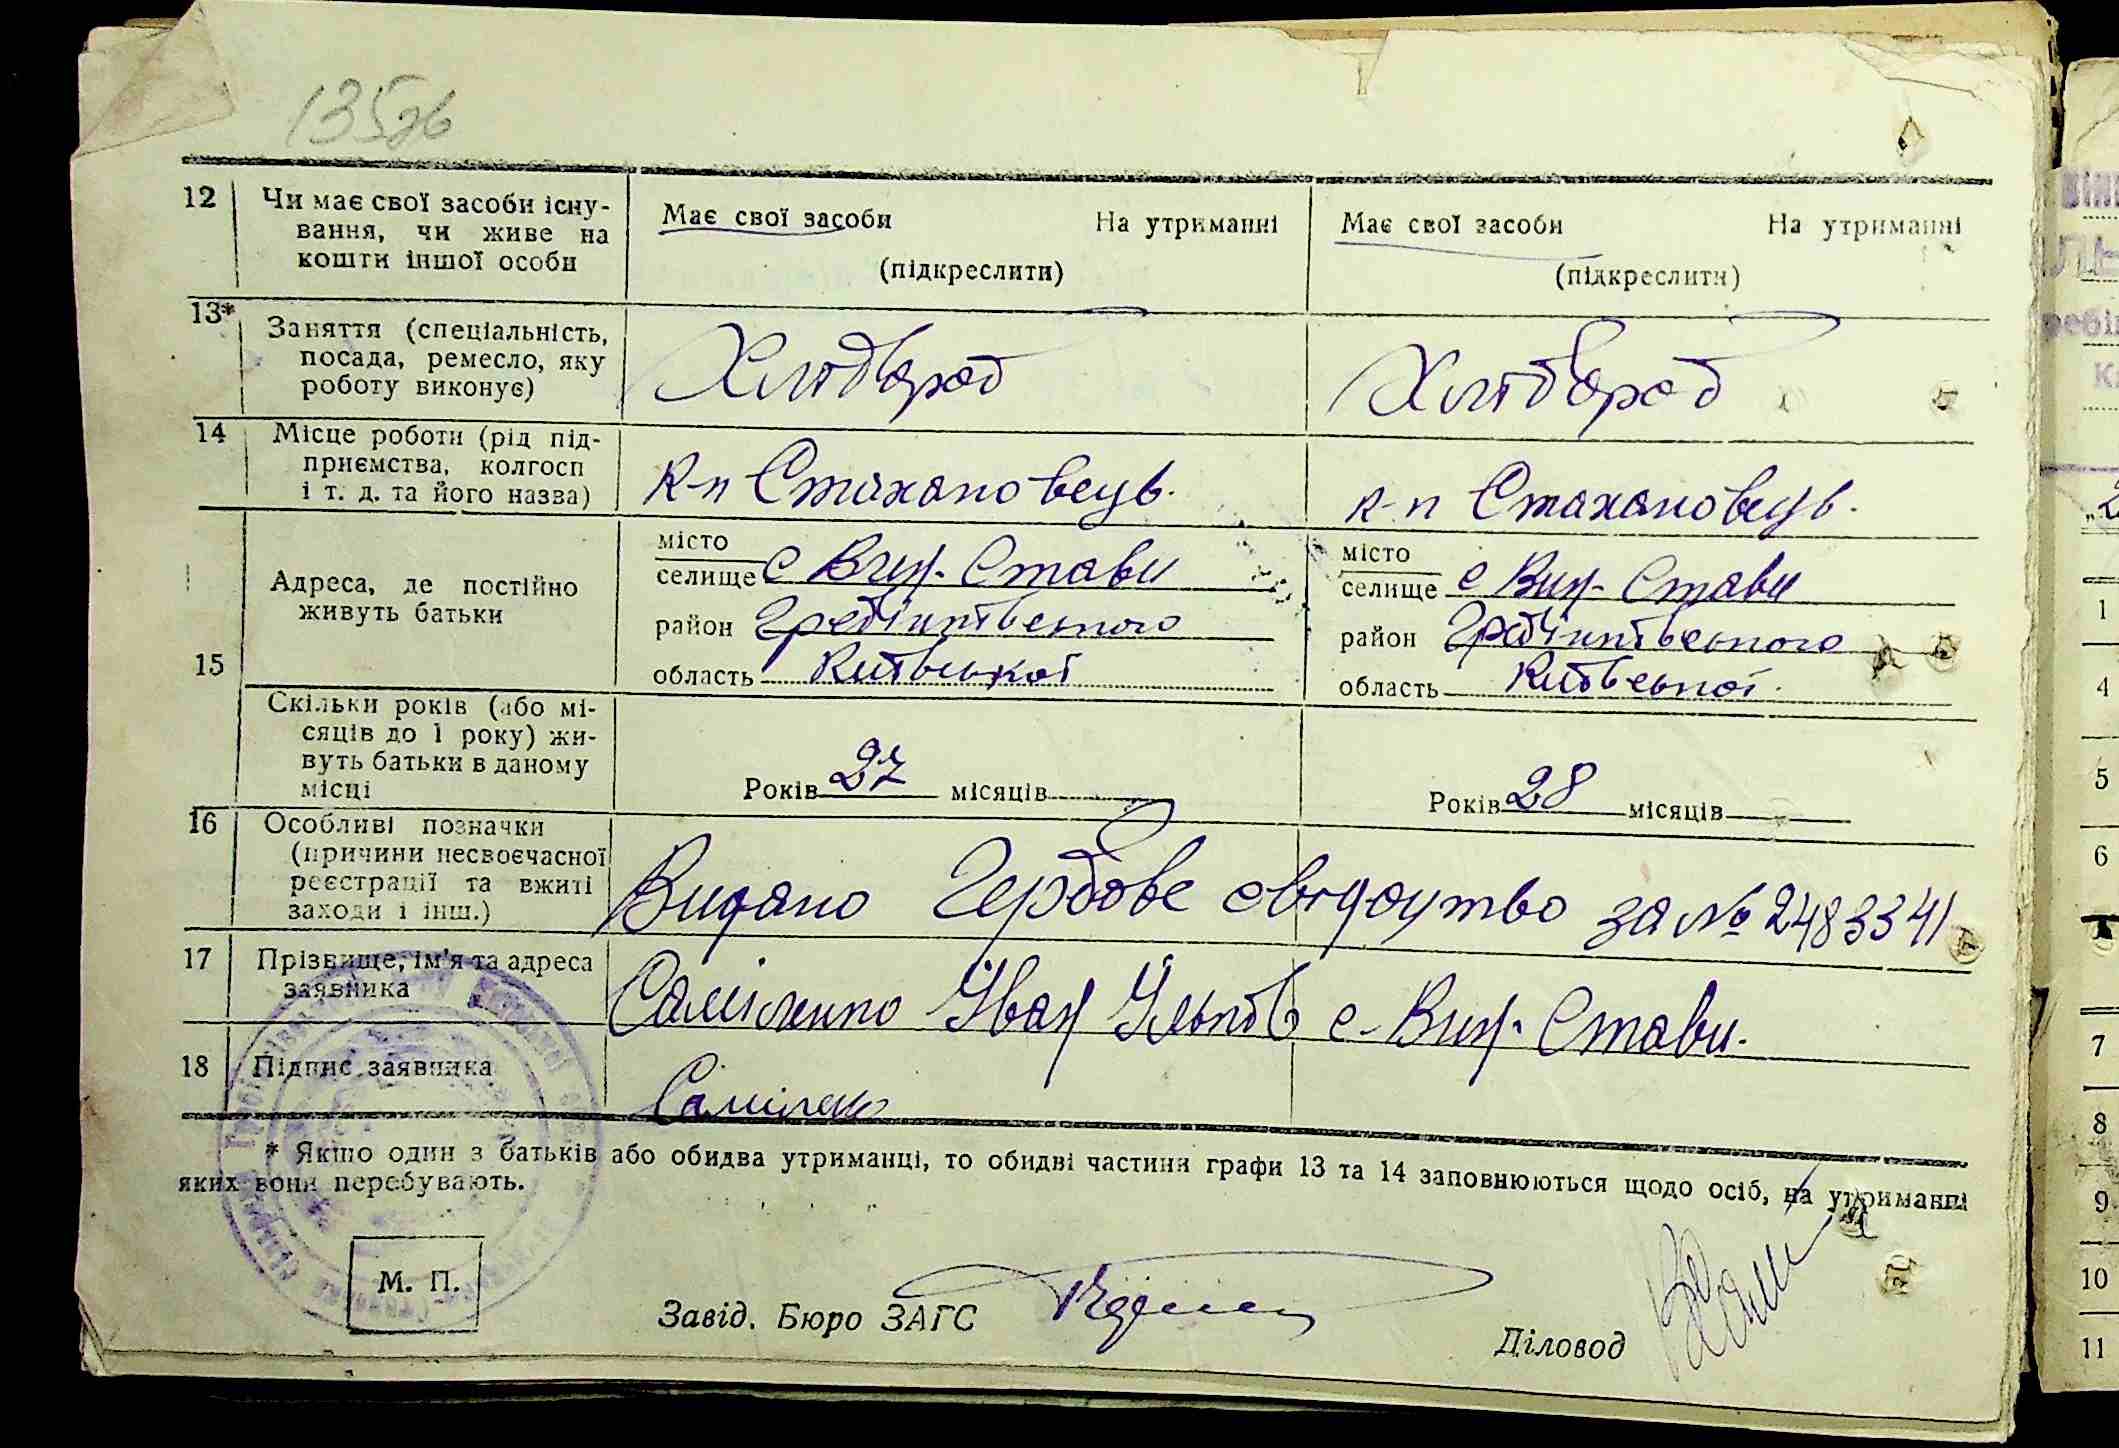 135зв
12 Чи має свої засоби існу-
вання, чи живе на
кошти іншої особи
Має свої засоби На утриманні
(підкреслити)
Має свої засоби На утриманні
(підкреслити)
13* Заняття (спеціальність,
посада, ремесло, яку
роботу виконує)
Хлібороб
Хлібороб
14 Місце роботи (рід під-
приємства, колгосп
і т. д. та його назва)
к-п Стахановець.
к-п Стахановець.
15
Адреса, де постійно
живуть батьки
місто
селище с Вин. Стави
район Гребінківського
область Київської
місто
селище с Вин. Стави
район Гребінківського
область Київської.
Скільки років (або мі-
сяців до 1 року) жи-
вуть батьки в даному
місці
Років 27 місяців
Років 28 місяців
16 Особливі позначки
(причини несвоєчасної
реєстрації та вжиті
заходи і інш.)
Видано Гербове свідоцтво за № 2483341
17 Прізвище, ім'я та адреса
заявника
Самієнко Іван Ільків с. Вин. Стави.
18 Підпис заявника
* Якщо один з батьків або обидва утриманці, то обидві частини графи 13 та 14 заповнюються щодо осіб, на утриманні
яких вони перебувають.
М. П.
Завід. Бюро ЗАГС
Діловод
1
4
5
6
7
8
9
10
11